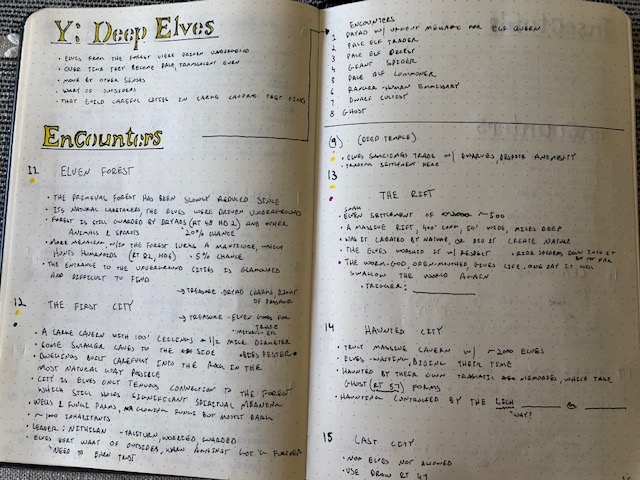 Y: Deep Elves
• ELVES FROM THE FOREST WERE DRIVEN UNDERGROUND
• OVER TIME THEY BECOME PALE, TRANSLUCENT EVEN
• MOVE BY OTHER SENSES
• WARY OF OUTSIDERS
• THEY BUILD CAREFUL CITIES IN LARGE CAVERNS THEY FIND
Encounters
11 ELVEN FOREST
• THE PRIMEVAL FOREST HAS BEEN SLOWLY REDUCED SINCE
• ITS NATURAL CARETAKERS, THE ELVES WERE DRIVEN UNDERGROUND
• FOREST IS STILL GUARDED BY DRYADS (RT 48 HD 2) AND OTHER
ANIMALS & SPIRITS 20% CHANCE
• MORE MENACING, W/IN THE FOREST LURKS A MANTICORE, WHICH
HUNTS HUMANOIDS (RT 82, HD6) • 5% CHANCE
• THE ENTRANCE TO THE UNDERGROUND CITIES IS GLAMOURED
AND DIFFICULT TO FIND
→ TREASURE - DRYAD CHARM, RIGHT
OF PASSAGE
12 THE FIRST CITY
→ TREASURE - ELVEN GOODS FOR
TRADE
• A LARGE CAVERN WITH 100' CEILINGS & 1/2 MILE DIAMETER
• SOME SMALLER CAVES TO THE SIDE
• DWELLINGS BUILT CAREFULLY INTO THE ROCK IN THE
MOST NATURAL WAY POSSIBLE
• CITY IS ELVES ONLY TENUOUS CONNECTION TO THE FOREST
WHICH STILL HOLDS SIGNIFICANT SPIRITUAL MEANING
• WELLS & FUNGI FARMS, GLOWING FUNGI BUT MOSTLY DARK
• ~ 1000 INHABITANTS
• LEADER: - TACITURN, WORRIED, GUARDED
• ELVES DON'T WANT OUTSIDERS, WARN AGAINST GOING FURTHER
NEED TO EARN TRUST
ENCOUNTERS
1 DRYAD W/ URGENT MESSAGE FOR ELF QUEEN
2 PALE ELF TRADER
3 PALE ELF PRIEST
4 GIANT SPIDER
5 PALE ELF COMMONER
6 RANGER - HUMAN EMISSARY
7 DWARF CULTIST
8 GHOST
(9) (DEEP TEMPLE)
• ELVES SOMETIMES TRADE W/ DWARVES, DESPITE ANIMOSITY
• TRADING SETTLEMENT HERE
13
THE RIFT
SMALL
• ELVEN SETTLEMENT OF ~ 500
• A MASSIVE RIFT, 400' LONG, 50' WIDE, MILES DEEP
• WAS IT CREATED BY NATURE, OR DID IT CREATE NATURE
• THE ELVES WORSHIP IT W/ RESPECT • RIDE SPIDERS DOWN INTO IT
BUT NOT FAR
• THE WORM-GOD, OPEN-MOUTHED, GIVES LIFE. ONE DAY IT WILL
SWALLOW THE WORLD AGAIN
• TRIGGER:
14 HAUNTED CITY
• TRULY MASSIVE CAVERN W/ ~ 2000 ELVES
• ELVES - WAITING, BIDING THEIR TIME
• HAUNTED BY THEIR OWN TRAGIC MEMORIES, WHICH TAKE
GHOST (RT 57) FORMS
• HAUNTING CONTROLLED BY THE LICH
WHY?
15 LAST CITY
• NON ELVES NOT ALLOWED
• USE DROW RT 47